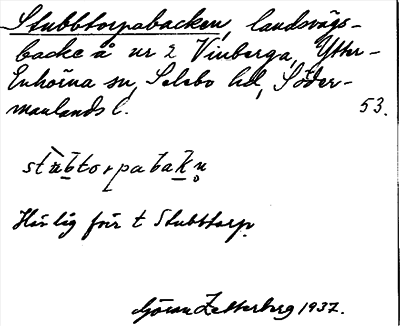 Stubbtorpabacken, landsvägs-
backe å nr 2 Vinberga, Ytter-
Enhörna sn, Selebo hd, Söder-
manlands l. 53.
stùbtorpabakn̥
Hör till t Stubbtorp.
Göran Zetterberg 1937.